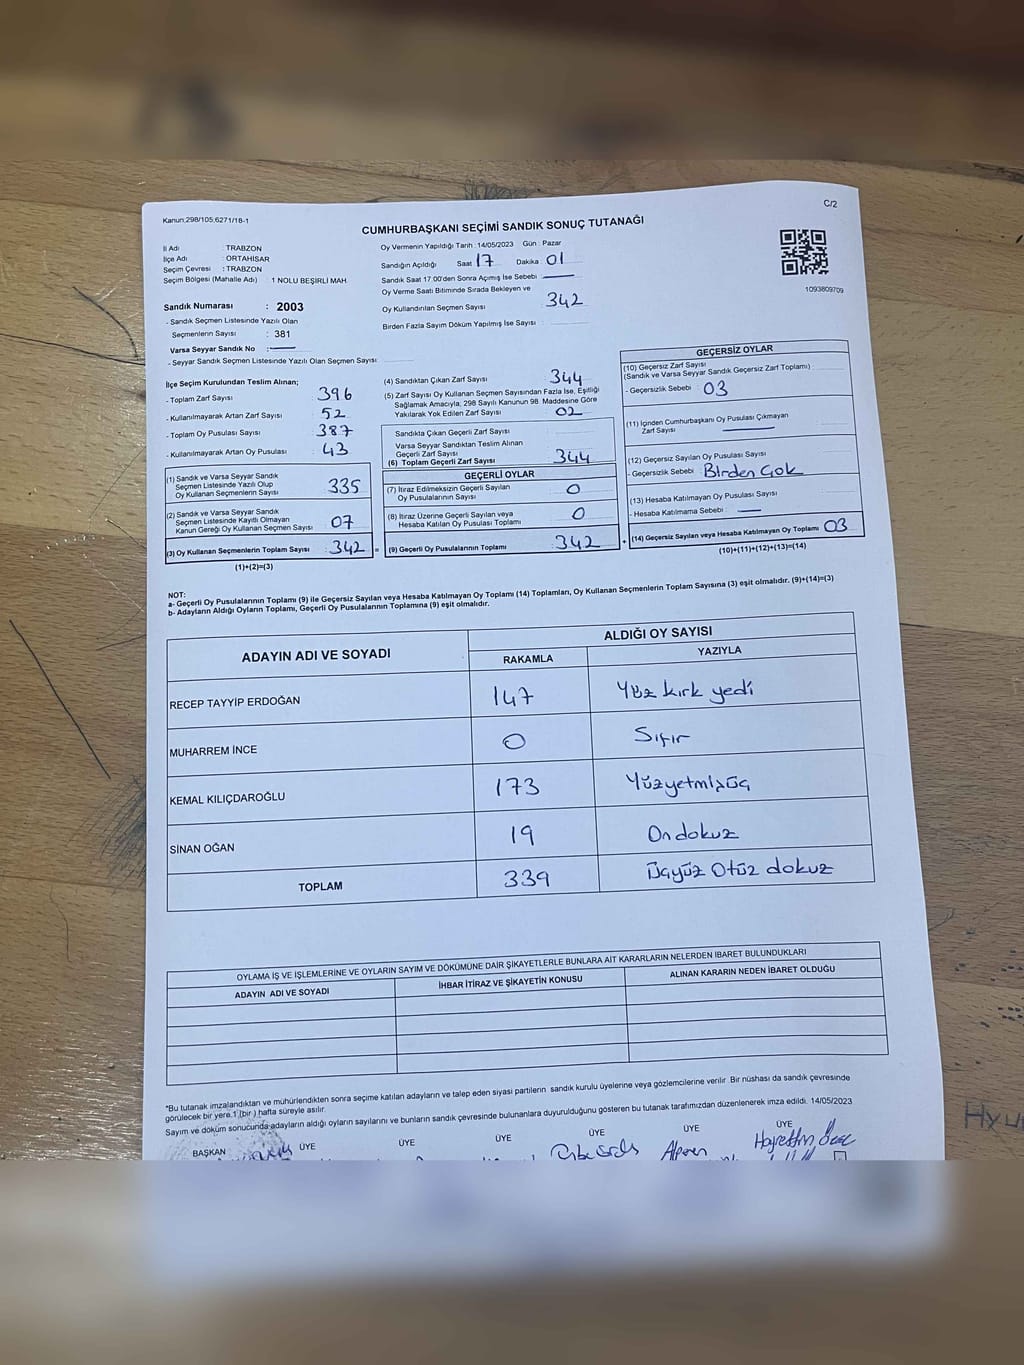 Kanun;298/105,6271/18-1
C/2
CUMHURBAŞKANI SEÇİMİ SANDIK SONUÇ TUTANAĞI
İl Adı : TRABZON
İlçe Adı : ORTAHİSAR
Seçim Çevresi : TRABZON
Seçim Bölgesi (Mahalle Adı) : 1 NOLU BEŞİRLİ MAH
Oy Vermenin Yapıldığı Tarih : 14/05/2023 Gün : Pazar
Sandığın Açıldığı Saat 17 Dakika 01
Sandık Saat 17:00'den Sonra Açımış İse Sebebi
Oy Verme Saati Bitiminde Sırada Bekleyen ve
Oy Kullandırılan Seçmen Sayısı 342
Birden Fazla Sayım Döküm Yapılmış İse Sayısı
1093809709
Sandık Numarası : 2003
- Sandık Seçmen Listesinde Yazılı Olan
Seçmenlerin Sayısı : 381
Varsa Seyyar Sandık No :
- Seyyar Sandık Seçmen Listesinde Yazılı Olan Seçmen Sayısı
İlçe Seçim Kurulundan Teslim Alınan;
- Toplam Zarf Sayısı 396
- Kullanılmayarak Artan Zarf Sayısı 52
- Toplam Oy Pusulası Sayısı 387
- Kullanılmayarak Artan Oy Pusulası 43
(1) Sandık ve Varsa Seyyar Sandık
Seçmen Listesinde Yazılı Olup
Oy Kullanan Seçmenlerin Sayısı 335
(2) Sandık ve Varsa Seyyar Sandık
Seçmen Listesinde Kayıtlı Olmayan
Kanun Gereği Oy Kullanan Seçmen Sayısı 07
(3) Oy Kullanan Seçmenlerin Toplam Sayısı : 342
(1)+(2)=(3)
(4) Sandıktan Çıkan Zarf Sayısı 344
(5) Zarf Sayısı Oy Kullanan Seçmen Sayısından Fazla İse, Eşitliği
Sağlamak Amacıyla; 298 Sayılı Kanunun 98. Maddesine Göre
Yakılarak Yok Edilen Zarf Sayısı 02
Sandıkta Çıkan Geçerli Zarf Sayısı
Varsa Seyyar Sandıktan Teslim Alınan
Geçerli Zarf Sayısı
(6) Toplam Geçerli Zarf Sayısı 344
GEÇERLİ OYLAR
(7) İtiraz Edilmeksizin Geçerli Sayılan
Oy Pusulalarının Sayısı 0
(8) İtiraz Üzerine Geçerli Sayılan veya
Hesaba Katılan Oy Pusulası Toplamı 0
= (9) Geçerli Oy Pusulalarının Toplamı 342
GEÇERSİZ OYLAR
(10) Geçersiz Zarf Sayısı
(Sandık ve Varsa Seyyar Sandık Geçersiz Zarf Toplamı)
- Geçersizlik Sebebi 03
(11) İçinden Cumhurbaşkanı Oy Pusulası Çıkmayan
Zarf Sayısı
(12) Geçersiz Sayılan Oy Pusulası Sayısı
- Geçersizlik Sebebi Birden Çok
(13) Hesaba Katılmayan Oy Pusulası Sayısı
- Hesaba Katılmama Sebebi
+ (14) Geçersiz Sayılan veya Hesaba Katılmayan Oy Toplamı 03
(10)+(11)+(12)+(13)=(14)
NOT:
a- Geçerli Oy Pusulalarının Toplamı (9) ile Geçersiz Sayılan veya Hesaba Katılmayan Oy Toplamı (14) Toplamları, Oy Kullanan Seçmenlerin Toplam Sayısına (3) eşit olmalıdır. (9)+(14)=(3)
b- Adayların Aldığı Oyların Toplamı, Geçerli Oy Pusulalarının Toplamına (9) eşit olmalıdır.
ADAYIN ADI VE SOYADI ALDIĞI OY SAYISI
RAKAMLA YAZIYLA
RECEP TAYYİP ERDOĞAN 147 Yüz kırk yedi
MUHARREM İNCE 0 Sıfır
KEMAL KILIÇDAROĞLU 173 Yüzyetmişüç
SİNAN OĞAN 19 Ondokuz
TOPLAM 339 Üçyüz Otüz dokuz
OYLAMA İŞ VE İŞLEMLERİNE VE OYLARIN SAYIM VE DÖKÜMÜNE DAİR ŞİKAYETLERLE BUNLARA AİT KARARLARIN NELERDEN İBARET BULUNDUKLARI
ADAYIN ADI VE SOYADI İHBAR İTİRAZ VE ŞİKAYETİN KONUSU ALINAN KARARIN NEDEN İBARET OLDUĞU
*Bu tutanak imzalandıktan ve mühürlendikten sonra seçime katılan adayların ve talep eden siyasi partilerin sandık kurulu üyelerine veya gözlemcilerine verilir. Bir nüshası da sandık çevresinde
görülecek bir yere 1 (bir ) hafta süreyle asılır.
Sayım ve döküm sonucunda adayların aldığı oyların sayılarını ve bunların sandık çevresinde bulunanlara duyurulduğunu gösteren bu tutanak tarafımızdan düzenlenerek imza edildi. 14/05/2023
BAŞKAN ÜYE ÜYE ÜYE ÜYE ÜYE ÜYE
Alperen Hayrettin